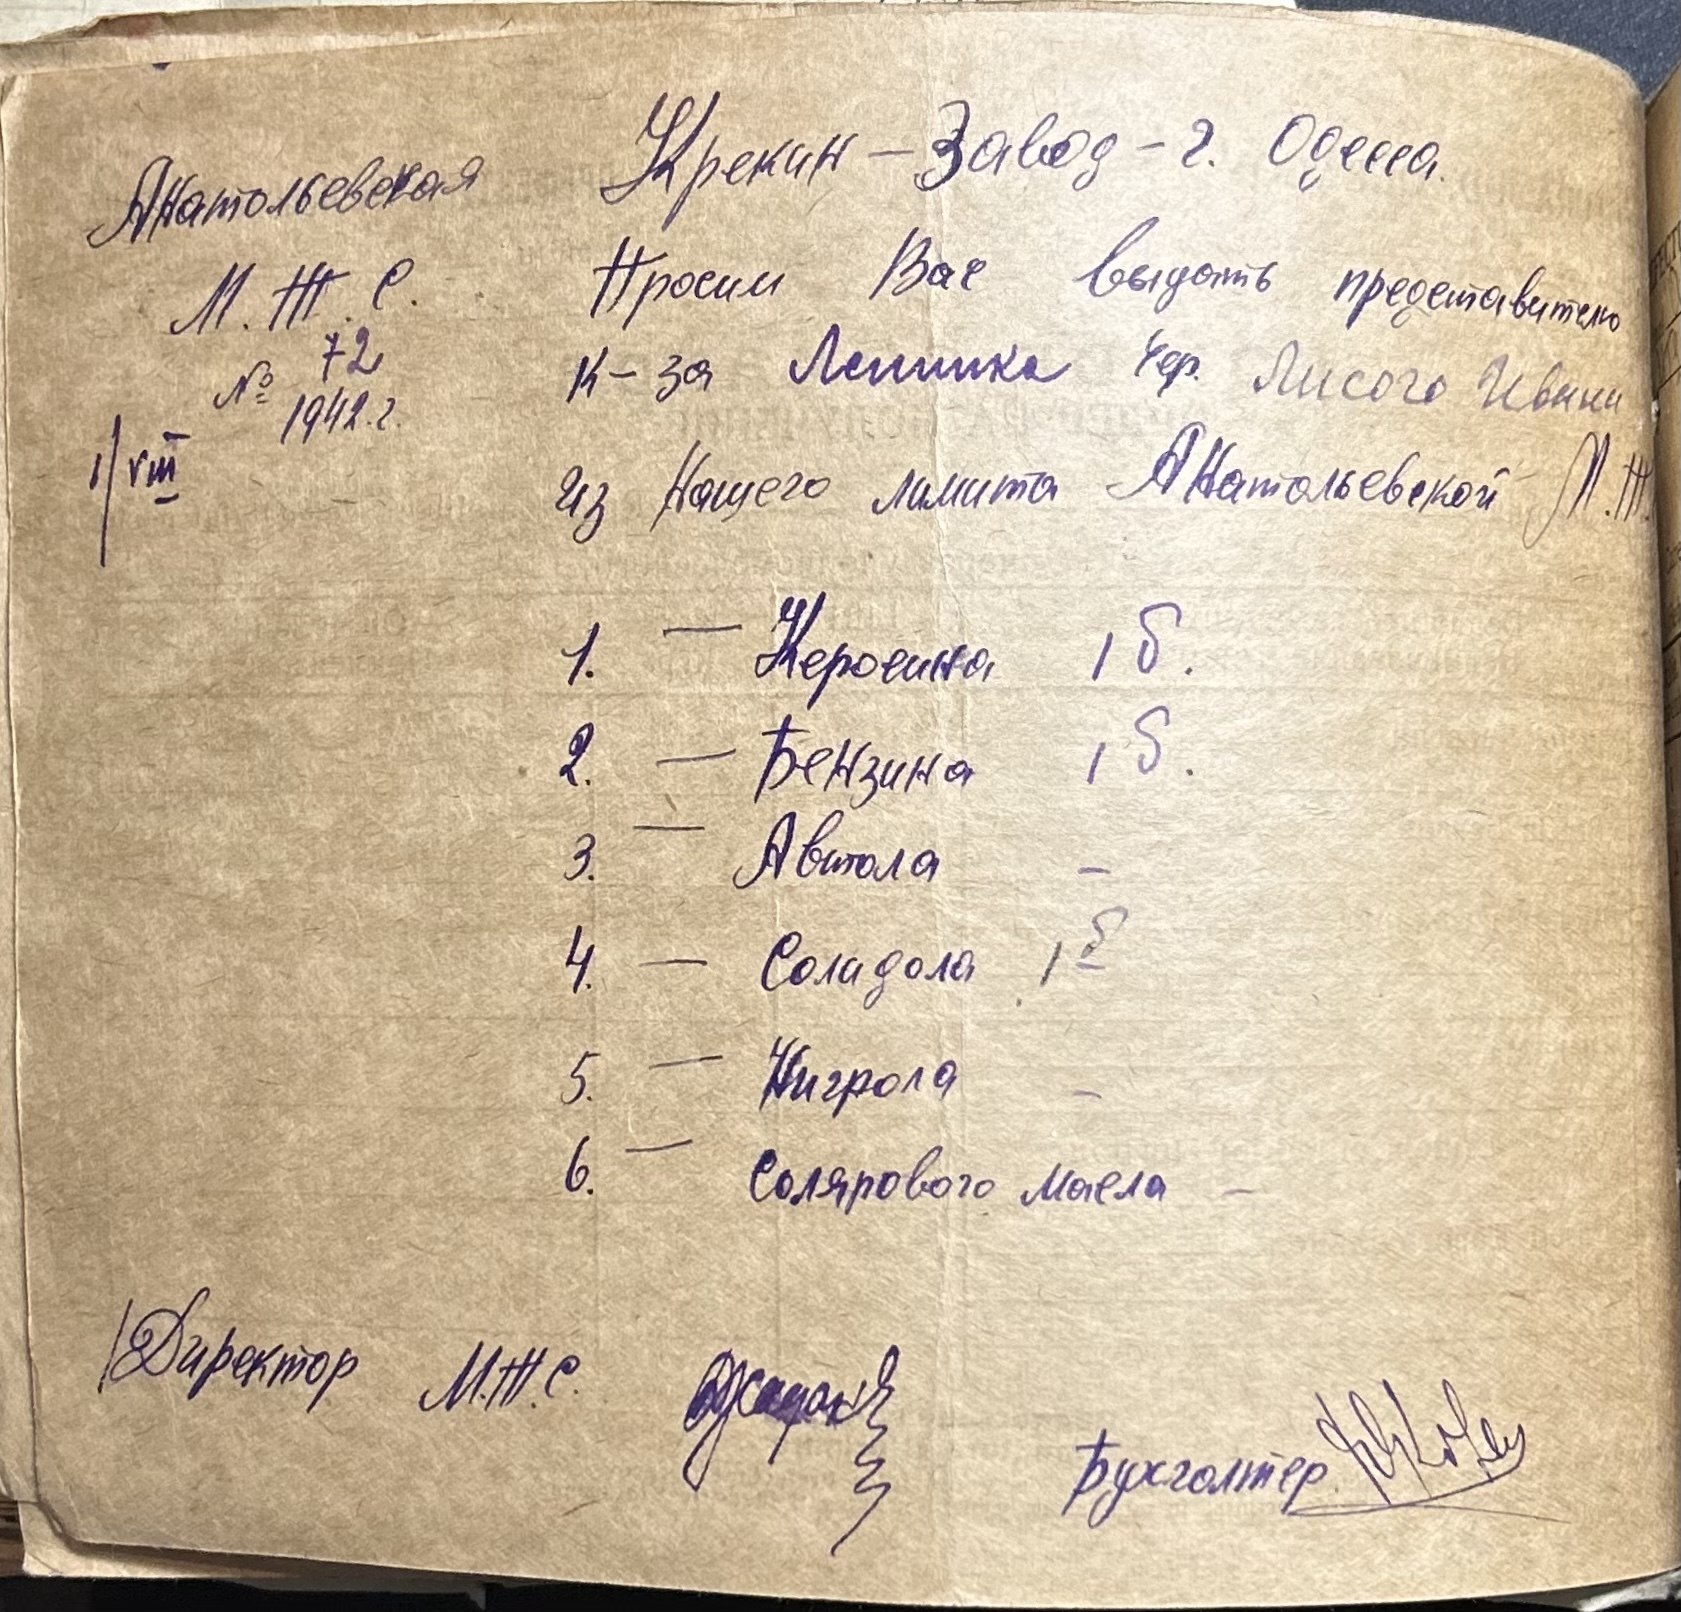 Крекин – Завод – г. Одесса.
Анатольевская
М. Т. С.
№ 72
1942.г.
1/VIII
Просим Вас выдать представителю
К-за Ленинка чер. Лисого Ивана
из Нашего лимита Анатольевской М.Т.
1. — Керосина 1 б.
2. — Бензина 1 б.
3. — Автола –
4. — Солидола 1 б
5. — Нигрола –
6. — Солярового масла –
Директор М.Т.С.
Бухгалтер